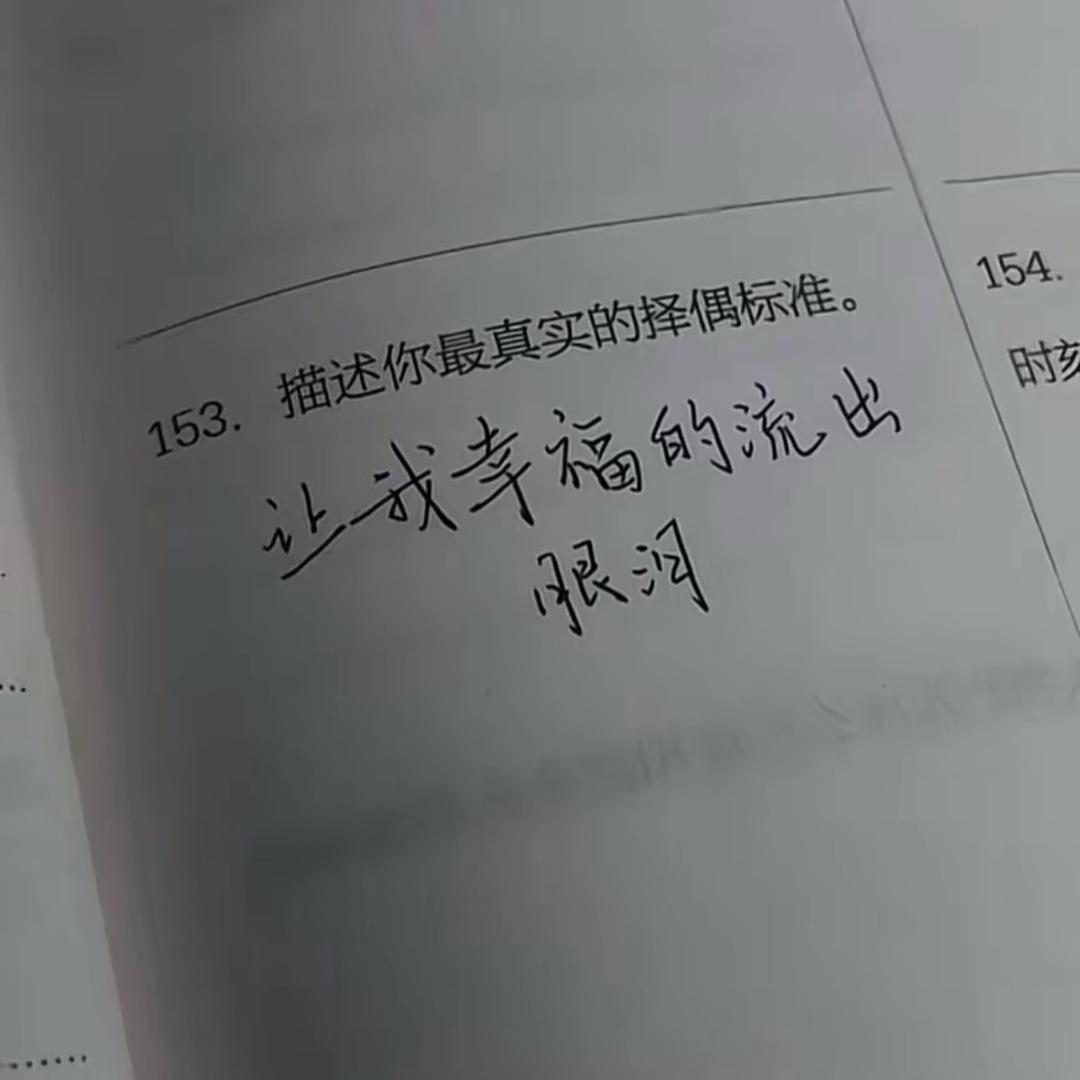 153. 描述你最真实的择偶标准。
让我幸福的流出
眼泪
154.
时刻